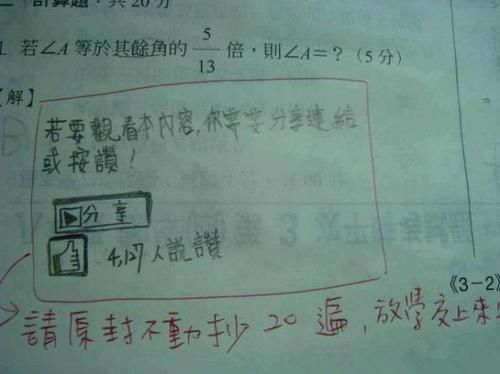 二、計算題：共20分
1. 若∠A等於其餘角的 5/13 倍，則∠A=？（5分）
【解】
若要觀看本內容，你需要分享連結
或按讚！
▶分享
4,127人說讚
《3-2》
請原封不動抄20遍，放學交上來!